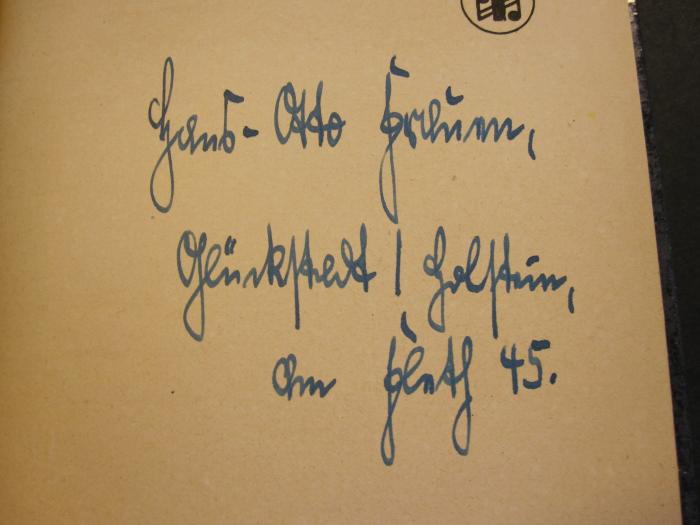 Hans-Otto Frauen,
Glückstadt / Holstein,
Am Fleth 45.